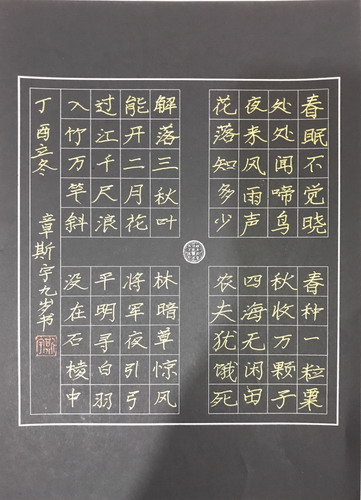 春眠不觉晓
处处闻啼鸟
夜来风雨声
花落知多少
春种一粒粟
秋收万颗子
四海无闲田
农夫犹饿死
解落三秋叶
能开二月花
过江千尺浪
入竹万竿斜
林暗草惊风
将军夜引弓
平明寻白羽
没在石棱中
丁酉立冬 章斯宇九岁书